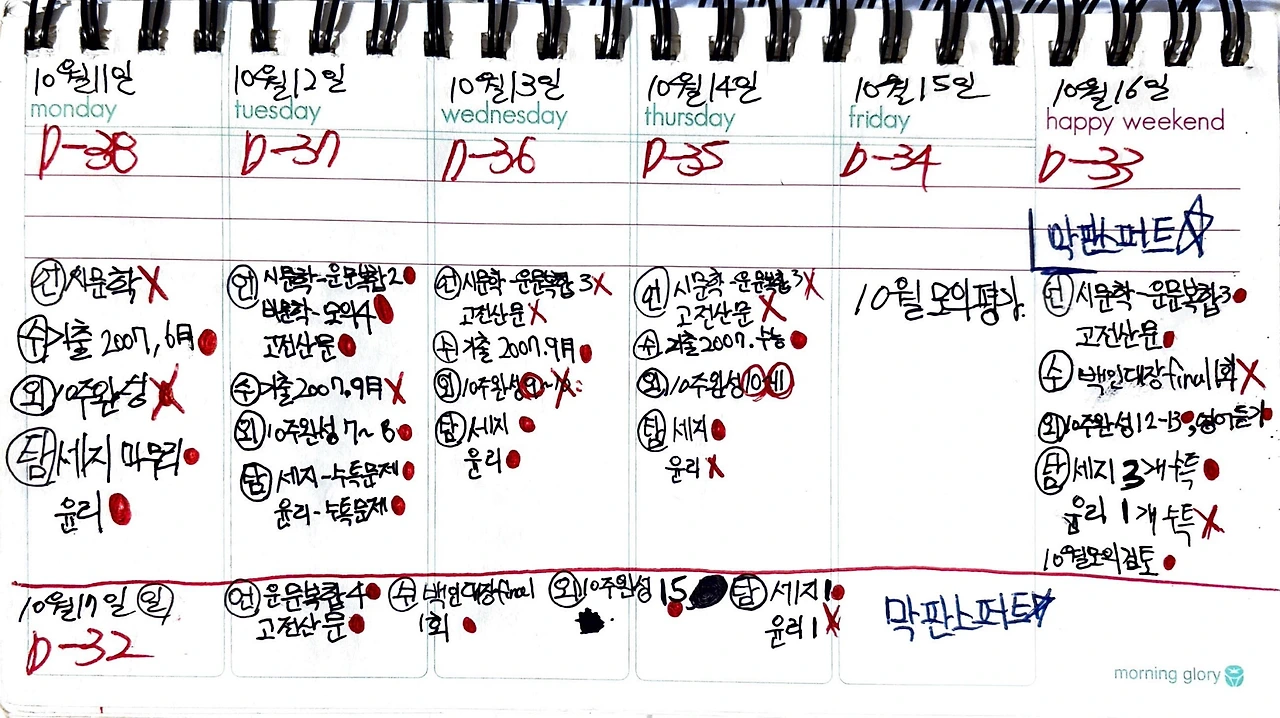 10월11일
monday
D-38
언 시문학 X
수 기출 2007, 6月
외 10주완성 X
탐 세지 마무리
윤리
10월12일
tuesday
D-37
언 시문학-운문복합2
비문학-모의4
고전산문
수 기출 2007.9月 X
외 10주완성 7~8
탐 세지-수특문제
윤리-수특문제
10월13일
wednesday
D-36
언 시문학-운문복합 3 X
고전산문 X
수 기출 2007.9月
외 10주완성
탐 세지
윤리
10월14일
thursday
D-35
언 시문학-운문복합3 X
고전산문 X
수 기출2007.수능
외 10주완성
탐 세지
윤리 X
10월15일
friday
D-34
10월 모의평가
10월16일
happy weekend
D-33
막판스퍼트☆
언 시문학-운문복합3
고전산문
수 백인대장final 1회 X
외 10주완성12-13, 영어듣기
탐 세지 3개 수특
윤리 1개 수특 X
10월모의검토
10월17일 일
D-32
언 운문복합 4
고전산문
수 백인대장final
1회
외 10주완성 15
탐 세지1
윤리1 X
막판스퍼트☆
morning glory